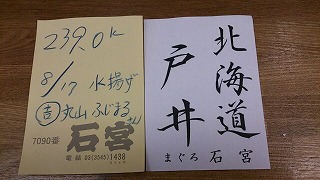 239.0k
8/17 水揚げ
吉 丸山 ふじまる
7090番 石宮
電話 03(3545)1438
北海道
戸井
まぐろ 石宮